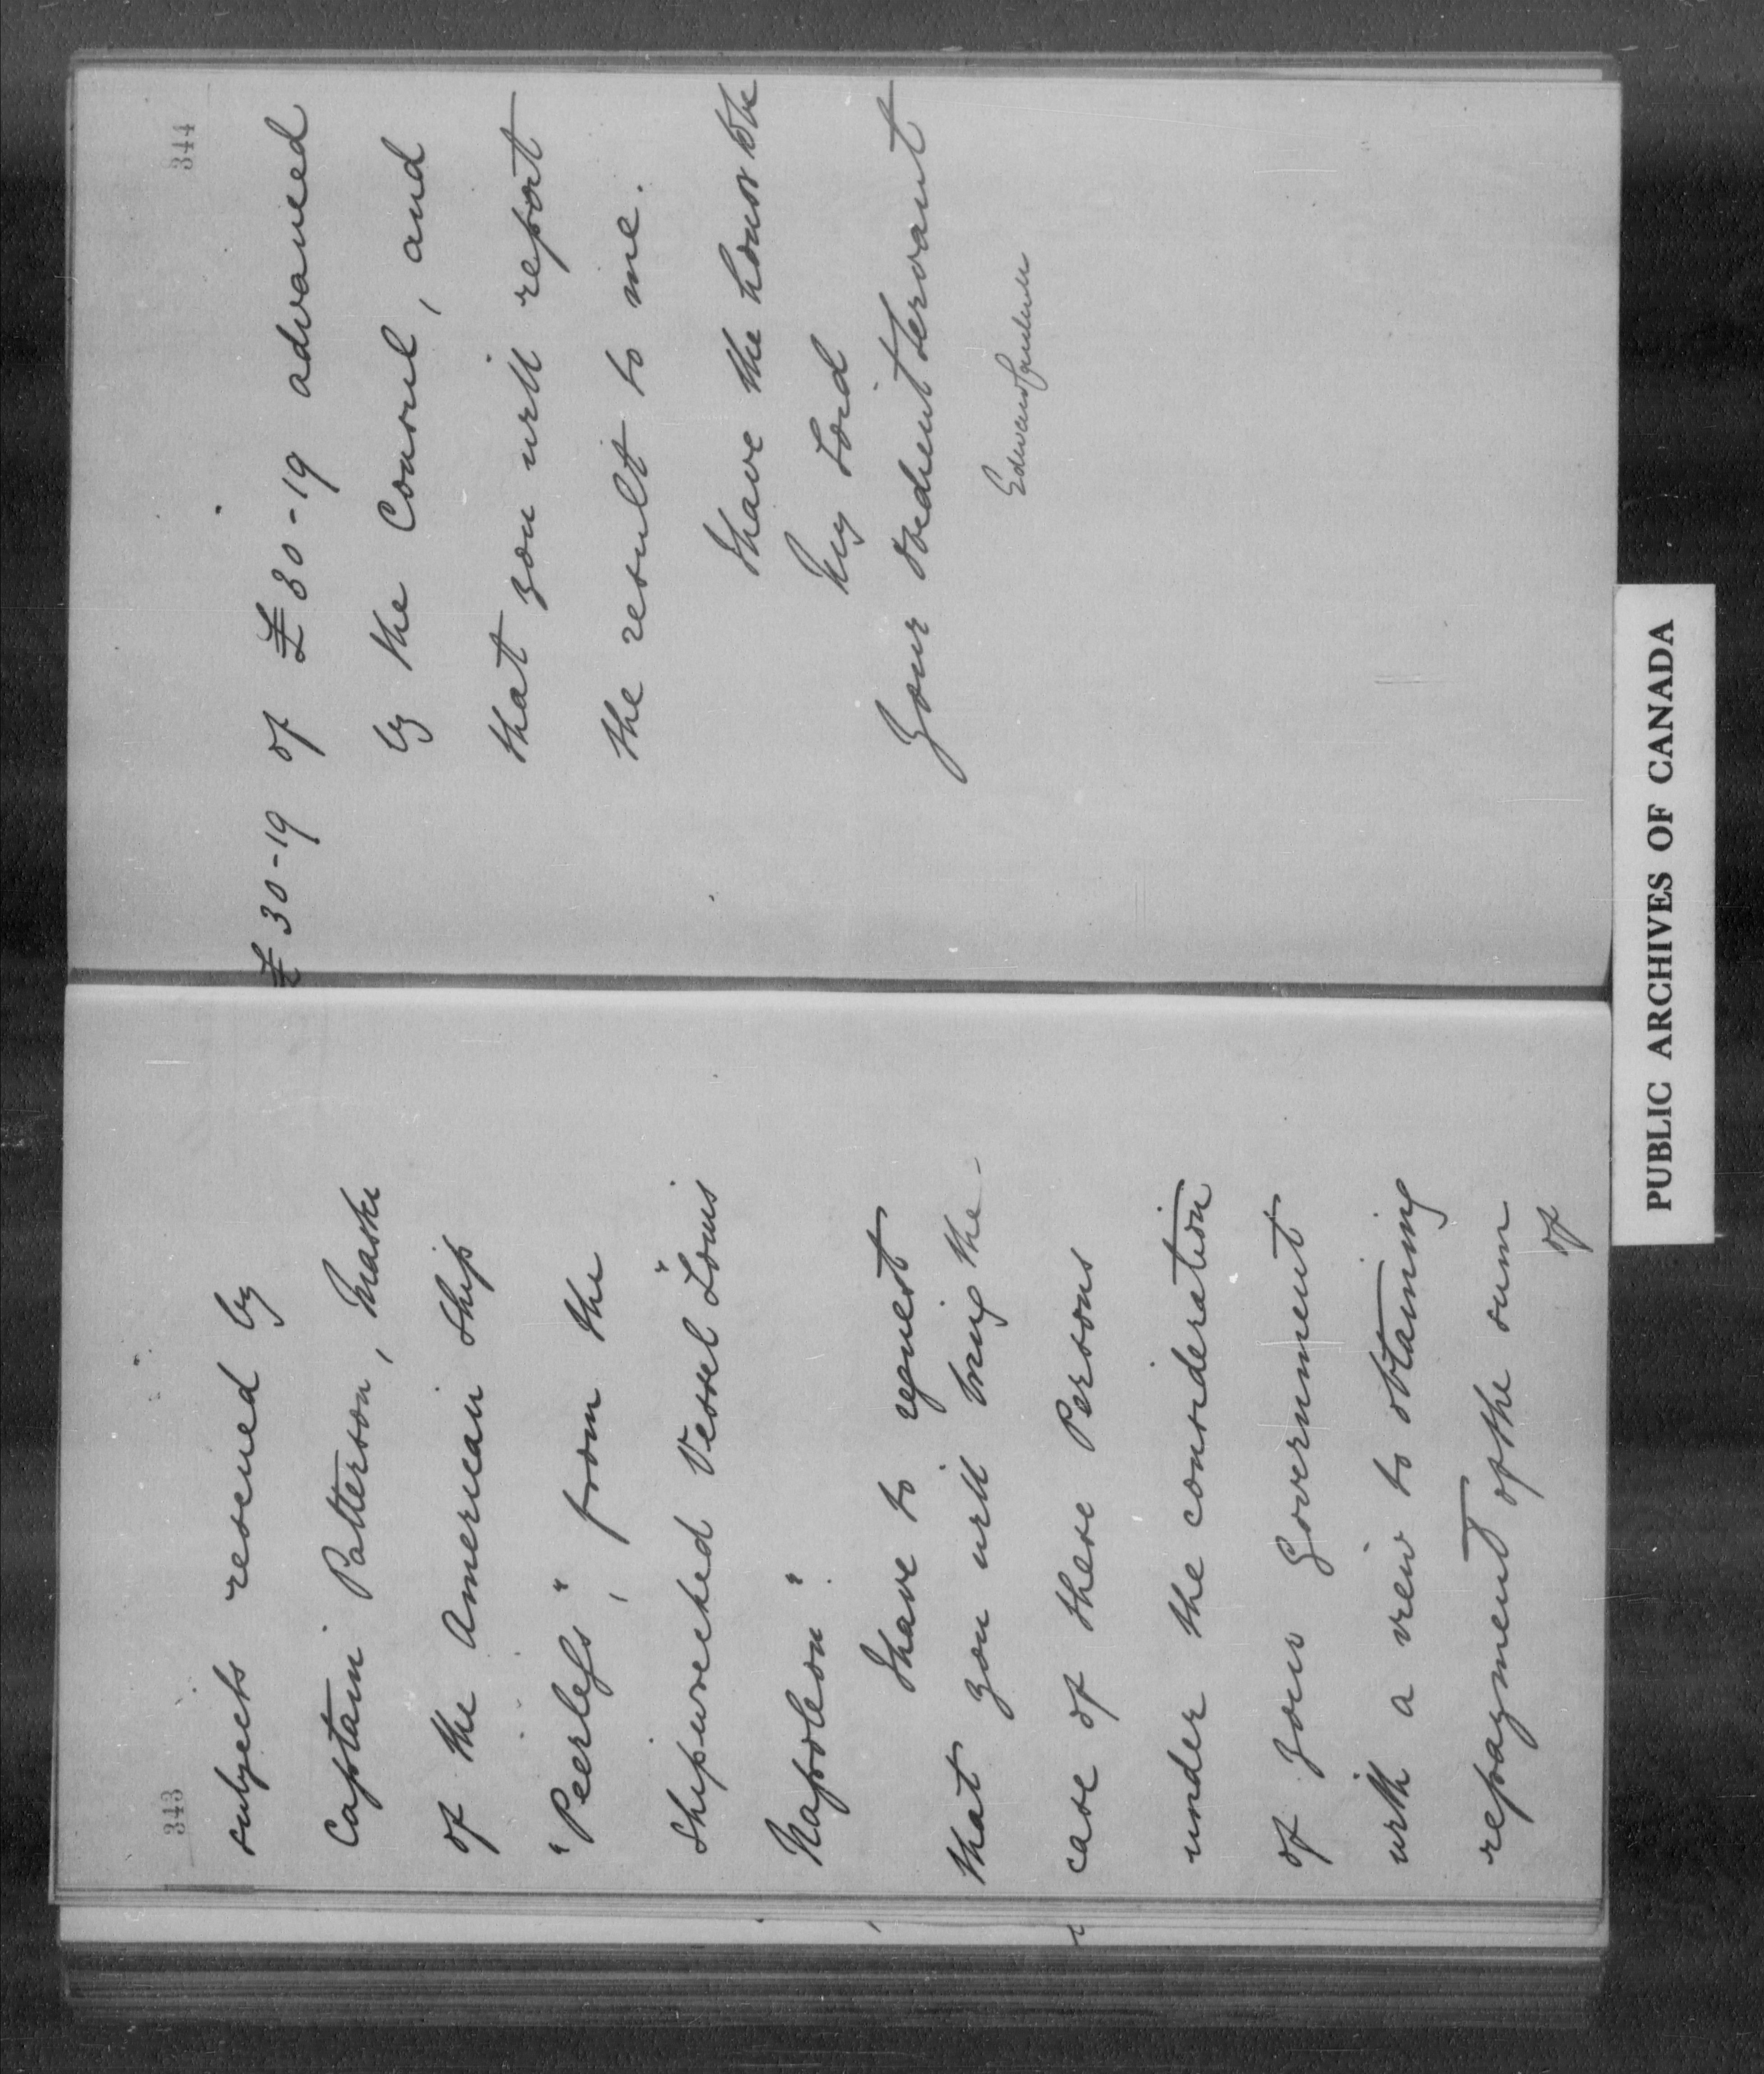 343
subjects rescued by
Captain Patterson, Master
of the American Ship
"Peerless", from the
Shipwrecked Vessel "Louis
Napoleon".
I have to request
that you will bring the
case of these Persons
under the consideration
of your Government
with a view to obtaining
repayment of the sum
of
344
£30-19 of £30-19 advanced
by the Consul, and
that you will report
the result to me.
I have the honor to be
My Lord
Your obedient Servant
PUBLIC ARCHIVES OF CANADA